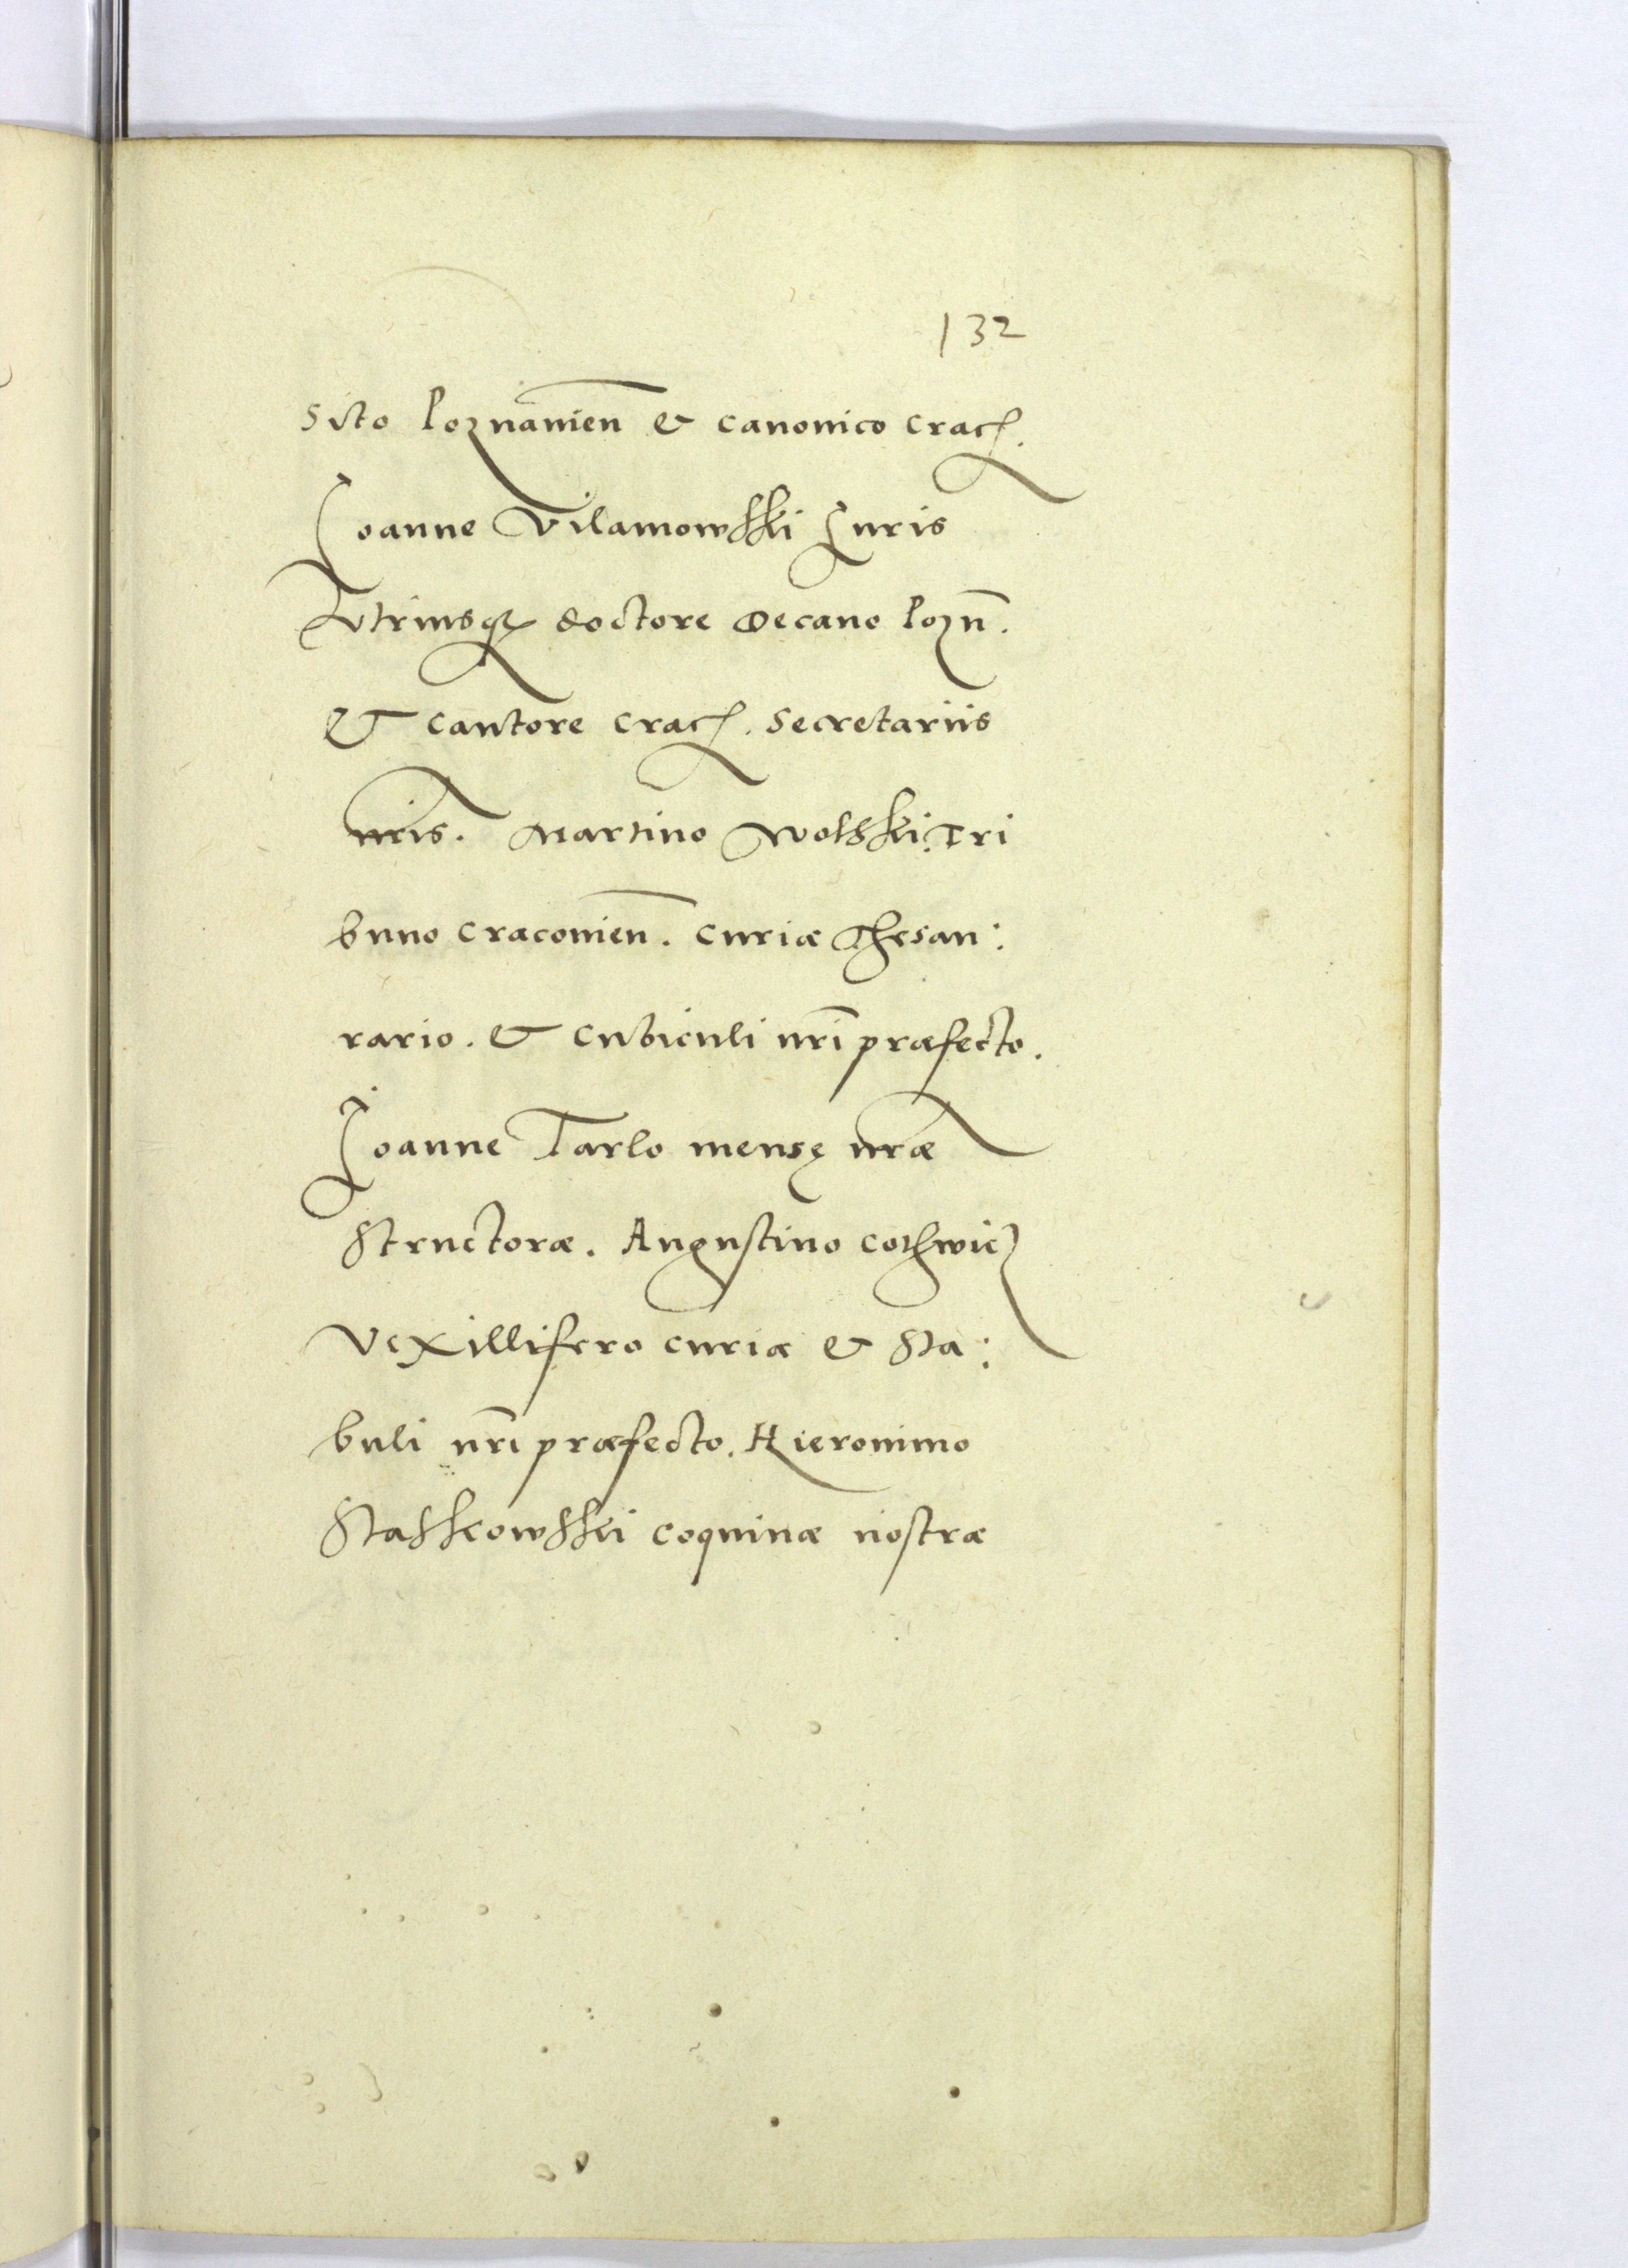 132
sito Poznanien̄ & canonico Crac.
Joanne Vilamowski Juris
Vtriusq; doctore Decano Pozn̄.
& cantore Crac. Secretariis
nr̄is. Martino Wolski Tri
buno Cracouien̄. Curiæ Thesau:
rario. & cubiculi nr̄i præfecto.
Joanne Tarlo mensę nr̄æ
Structoræ. Augustino Cothwicz
Vexillifero curiæ & Sta:
buli nr̄i præfecto. Hieronimo
Staskowski coquinæ nostræ